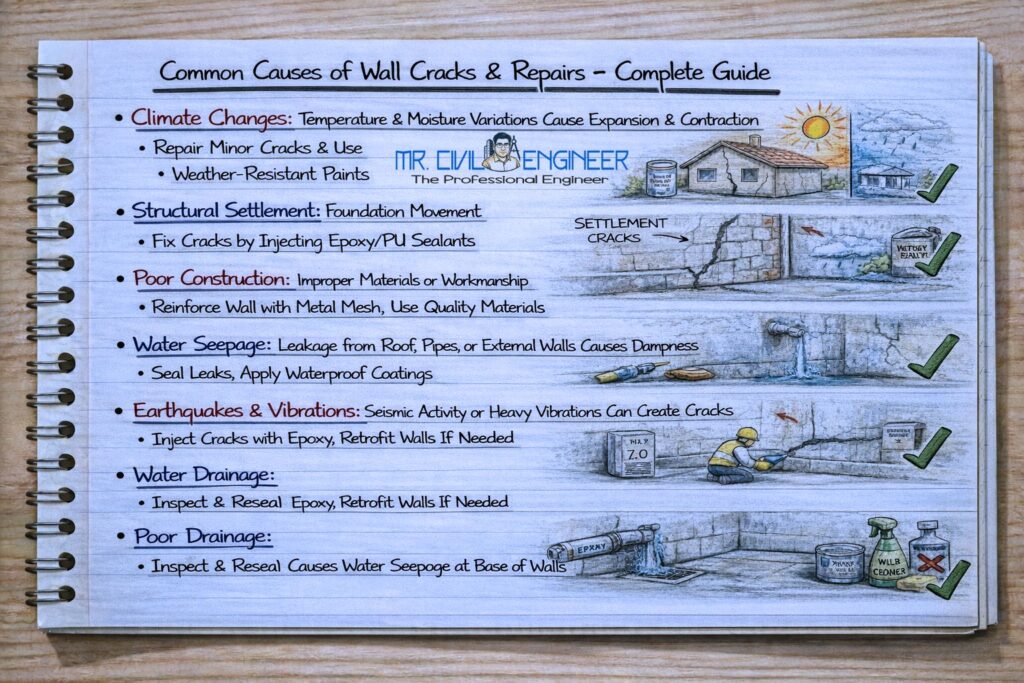 Common Causes of Wall Cracks & Repairs – Complete Guide
• Climate Changes: Temperature & Moisture Variations Cause Expansion & Contraction
• Repair Minor Cracks & Use
• Weather-Resistant Paints
MR. CIVIL ENGINEER
The Professional Engineer
• Structural Settlement: Foundation Movement
• Fix Cracks by Injecting Epoxy/PU Sealants
SETTLEMENT
CRACKS
• Poor Construction: Improper Materials or Workmanship
• Reinforce Wall with Metal Mesh, Use Quality Materials
• Water Seepage: Leakage from Roof, Pipes, or External Walls Causes Dampness
• Seal Leaks, Apply Waterproof Coatings
• Earthquakes & Vibrations: Seismic Activity or Heavy Vibrations Can Create Cracks
• Inject Cracks with Epoxy, Retrofit Walls If Needed
7.0
• Water Drainage:
• Inspect & Reseal Epoxy, Retrofit Walls If Needed
• Poor Drainage:
• Inspect & Reseal Causes Water Seepoge at Base of Walls
EPXMY
WLLB
CEONER